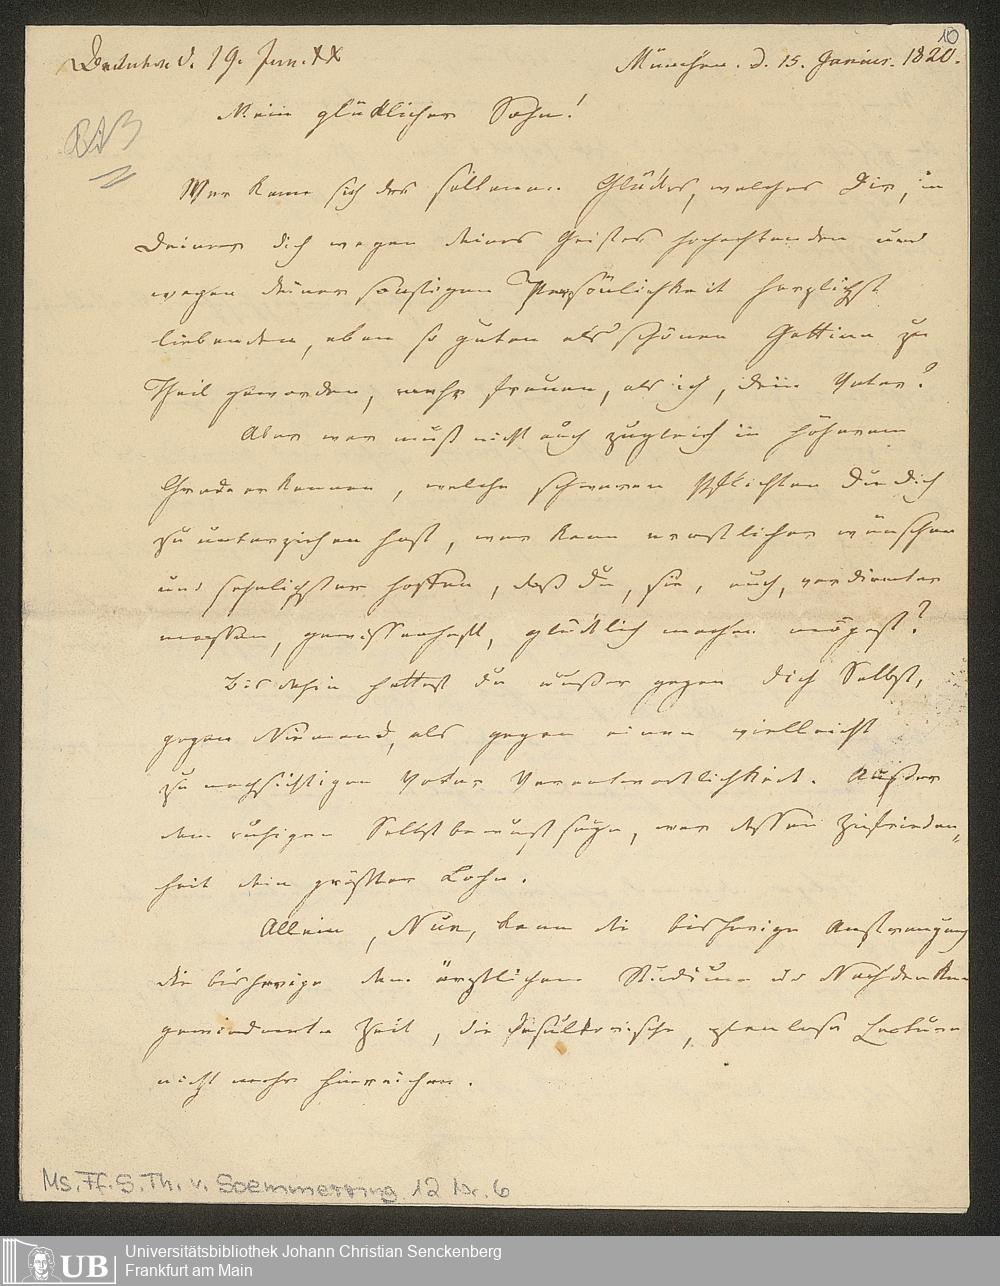 10
d. 19. Jan. XX
München. d. 15. Januar. 1820.
Mein glücklicher Sohn!
Wer kann sich des seltenen Glückes, welches Dir, in
Deiner dich wegen deines Geistes hochachtenden und
wegen deiner sonstigen Persönlichkeit herzlichst
liebenden, eben so guten als schönen Gattinn zu
Theil geworden, mehr freuen, als ich, dein Vater?
Aber wer muß nicht auch zugleich in höherem
Grade erkennen, welche schweren Pflichten Du dich
zu unterziehen hast, wer kann ernstlicher wünschen
und sehnlichster hoffen, daß Du, sie, auch, verdienter
massen, gewissenhaft, glücklich machen mögest?
Bis dahin hattest du außer gegen dich Selbst,
gegen Niemand, als gegen einen vielleicht
zu nachsichtigen Vater Verantwortlichkeit. Außer
dem ruhigen Selbstbewußtseyn, war dessen Zufrieden„
heit dein größter Lohn.
Allein, Nun, kann die bisherige Anstrengung
die bisherige dem ärztlichen Studium u Nachdenken
gewidmete Zeit, die desultorische, planlose Lecture
nicht mehr hinreichen.
Ms. Ff. S. Th. v. Soemmerring 12 Nr. 6
UB
Universitätsbibliothek Johann Christian Senckenberg
Frankfurt am Main